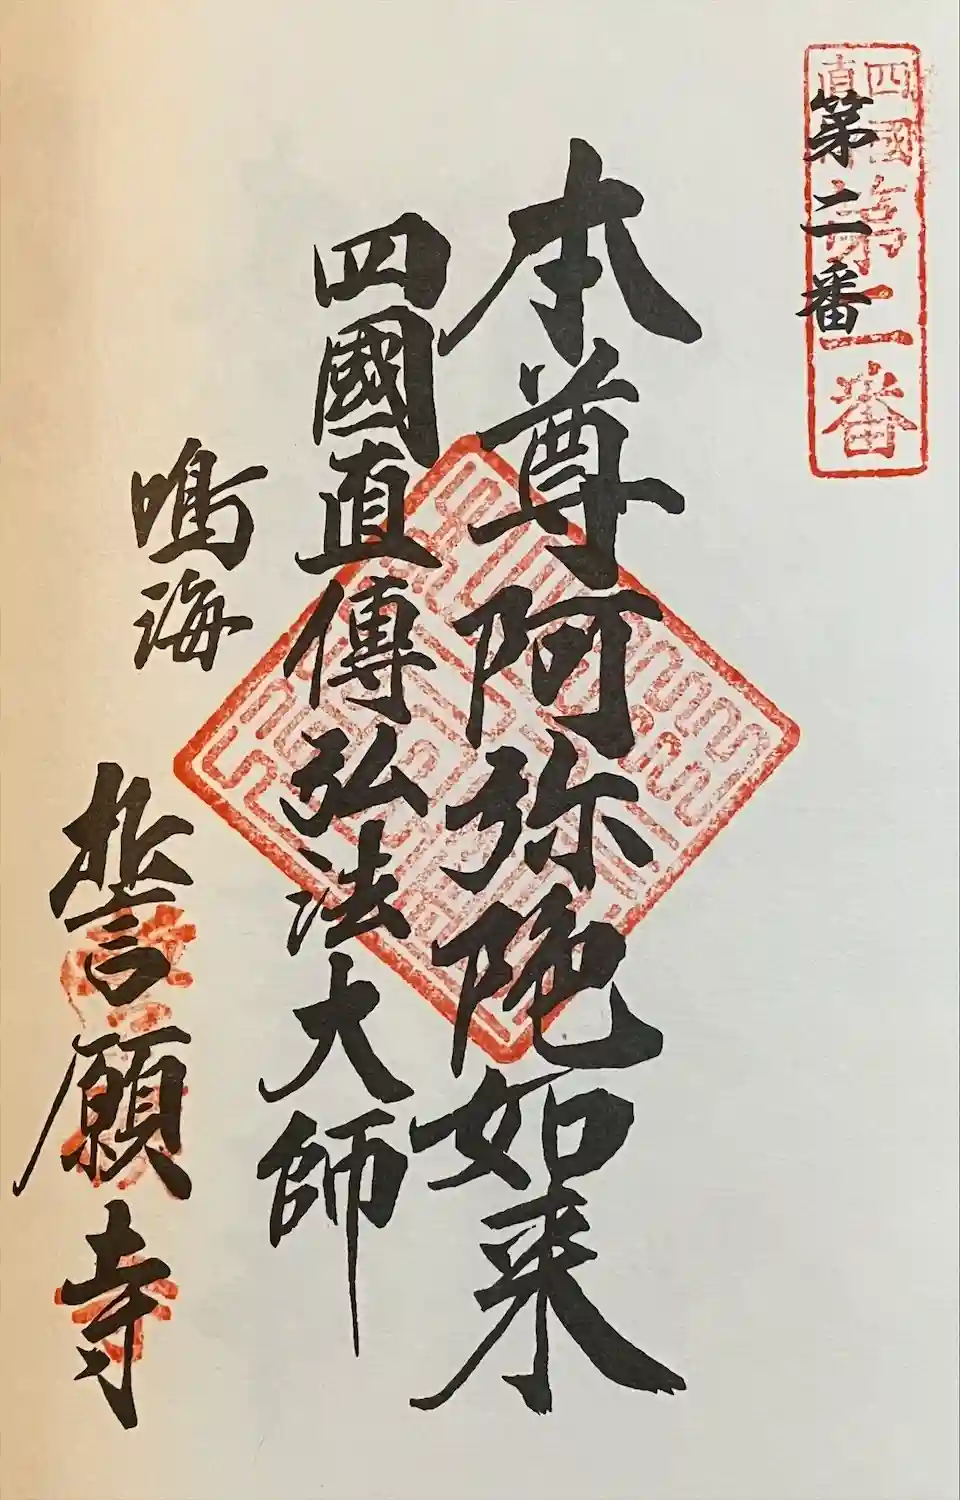 四國
直
第二番
第二番
本尊阿弥陀如来
四國直傳弘法大師
鳴海
誓願寺